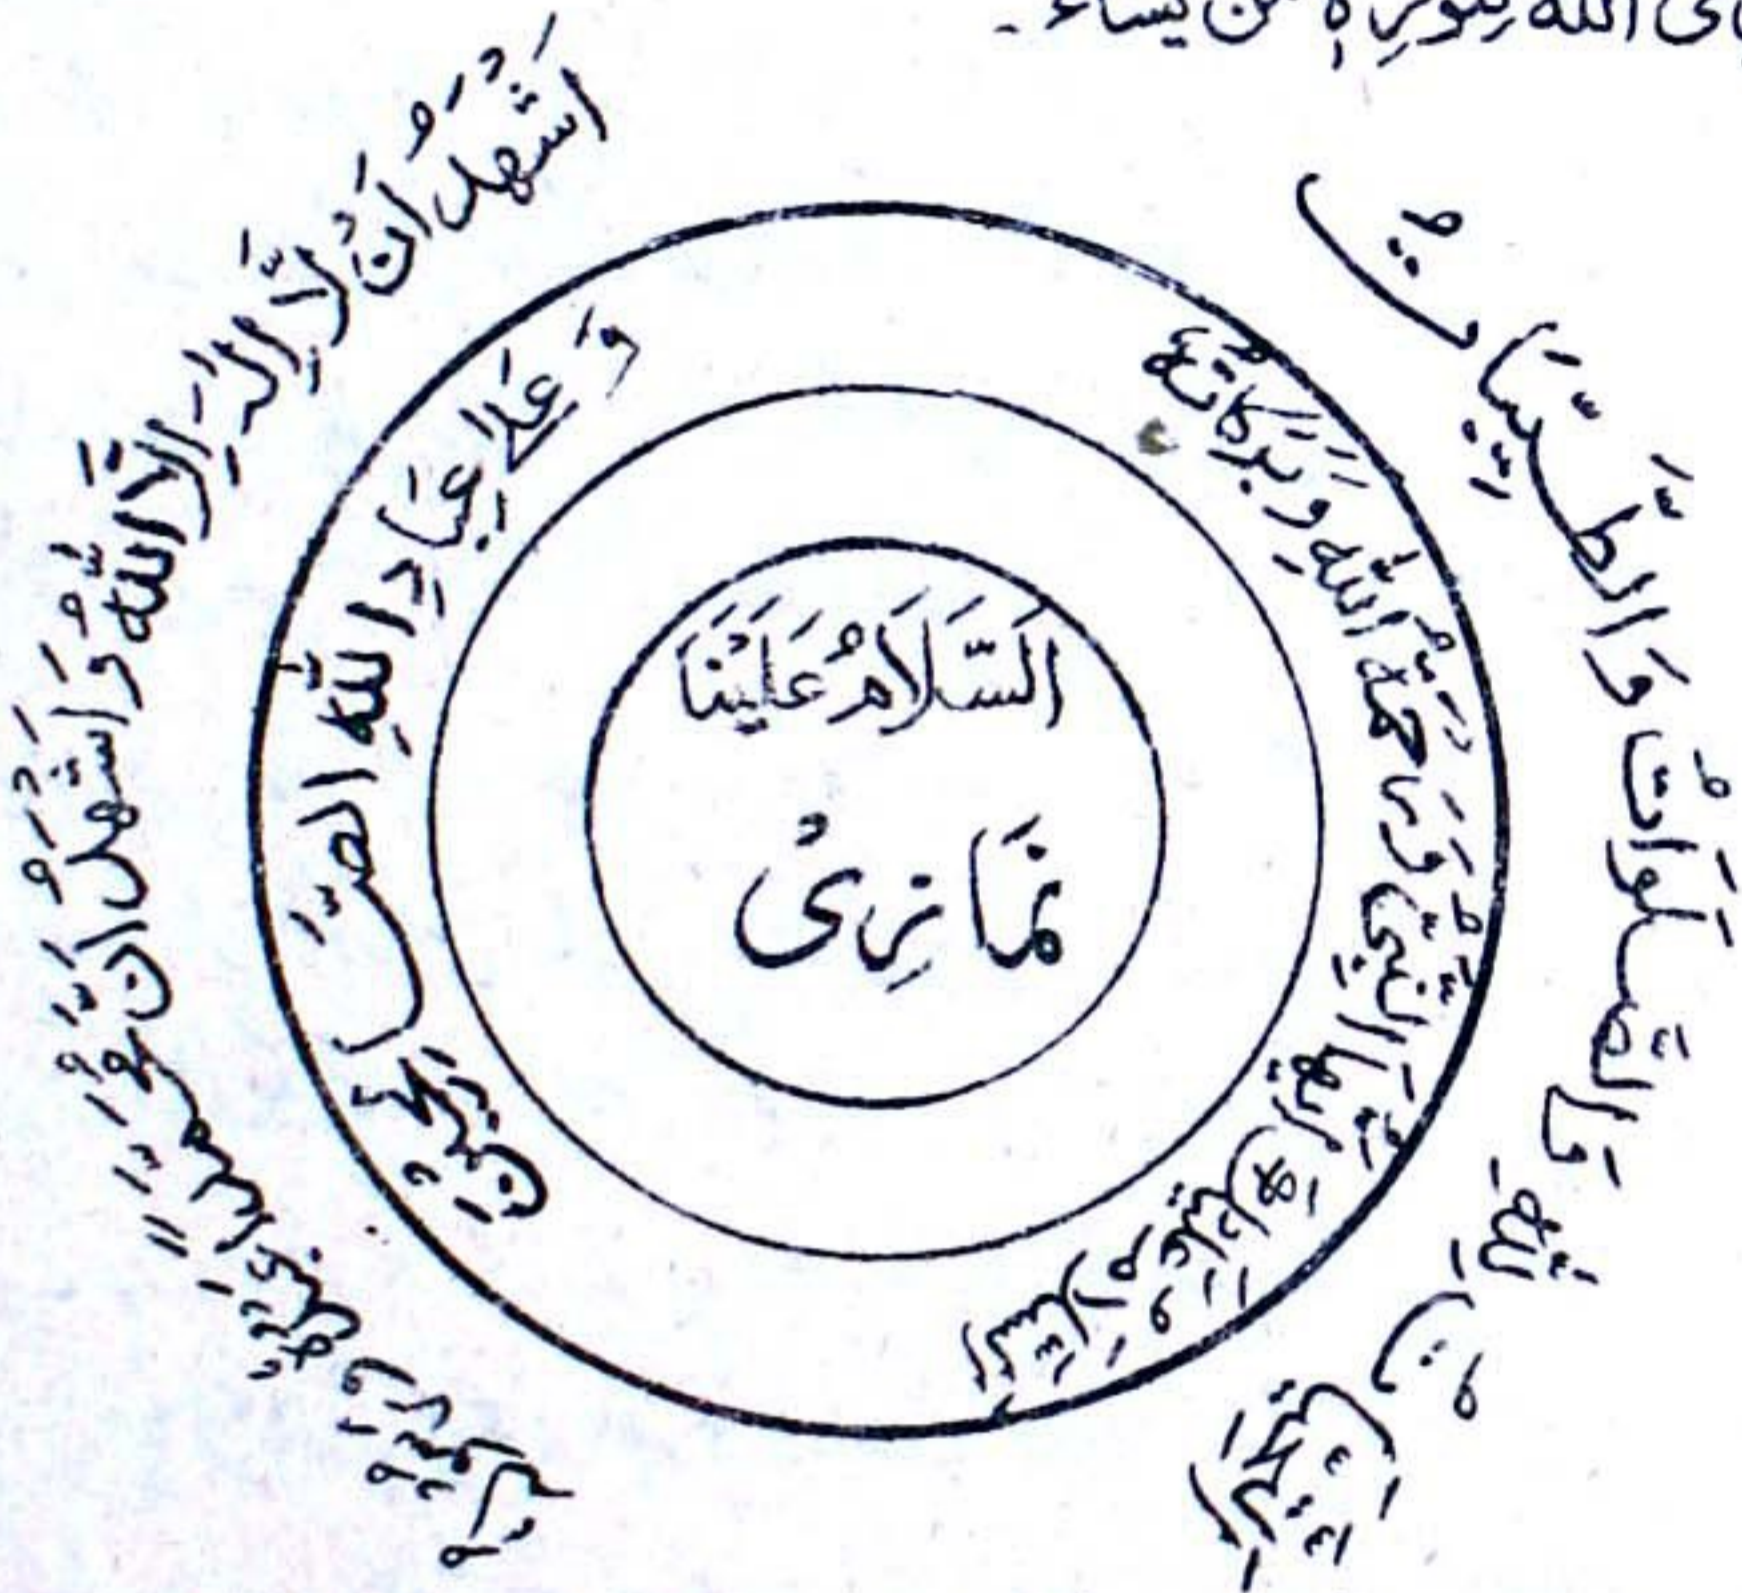 اللہ لِنُوْرِہٖ مَنْ یَّشَاءُ ۔
اَلتَّحِیَّاتُ لِلّٰہِ وَالصَّلَوَاتُ وَالطَّیِّبَاتُ
اَلسَّلَامُ عَلَیْكَ اَیُّھَا النَّبِیُّ وَرَحْمَۃُ اللّٰہِ وَبَرَكَاتُہٗ
اَلسَّلَامُ عَلَیْنَا
نَمَازِیْ
وَ عَلٰی عِبَادِ اللّٰہِ الصّٰلِحِیْنَ
اَشْھَدُ اَنْ لَّا اِلٰہَ اِلَّا اللّٰہُ وَاَشْھَدُ اَنَّ مُحَمَّدًا عَبْدُہٗ وَرَسُوْلُہٗ